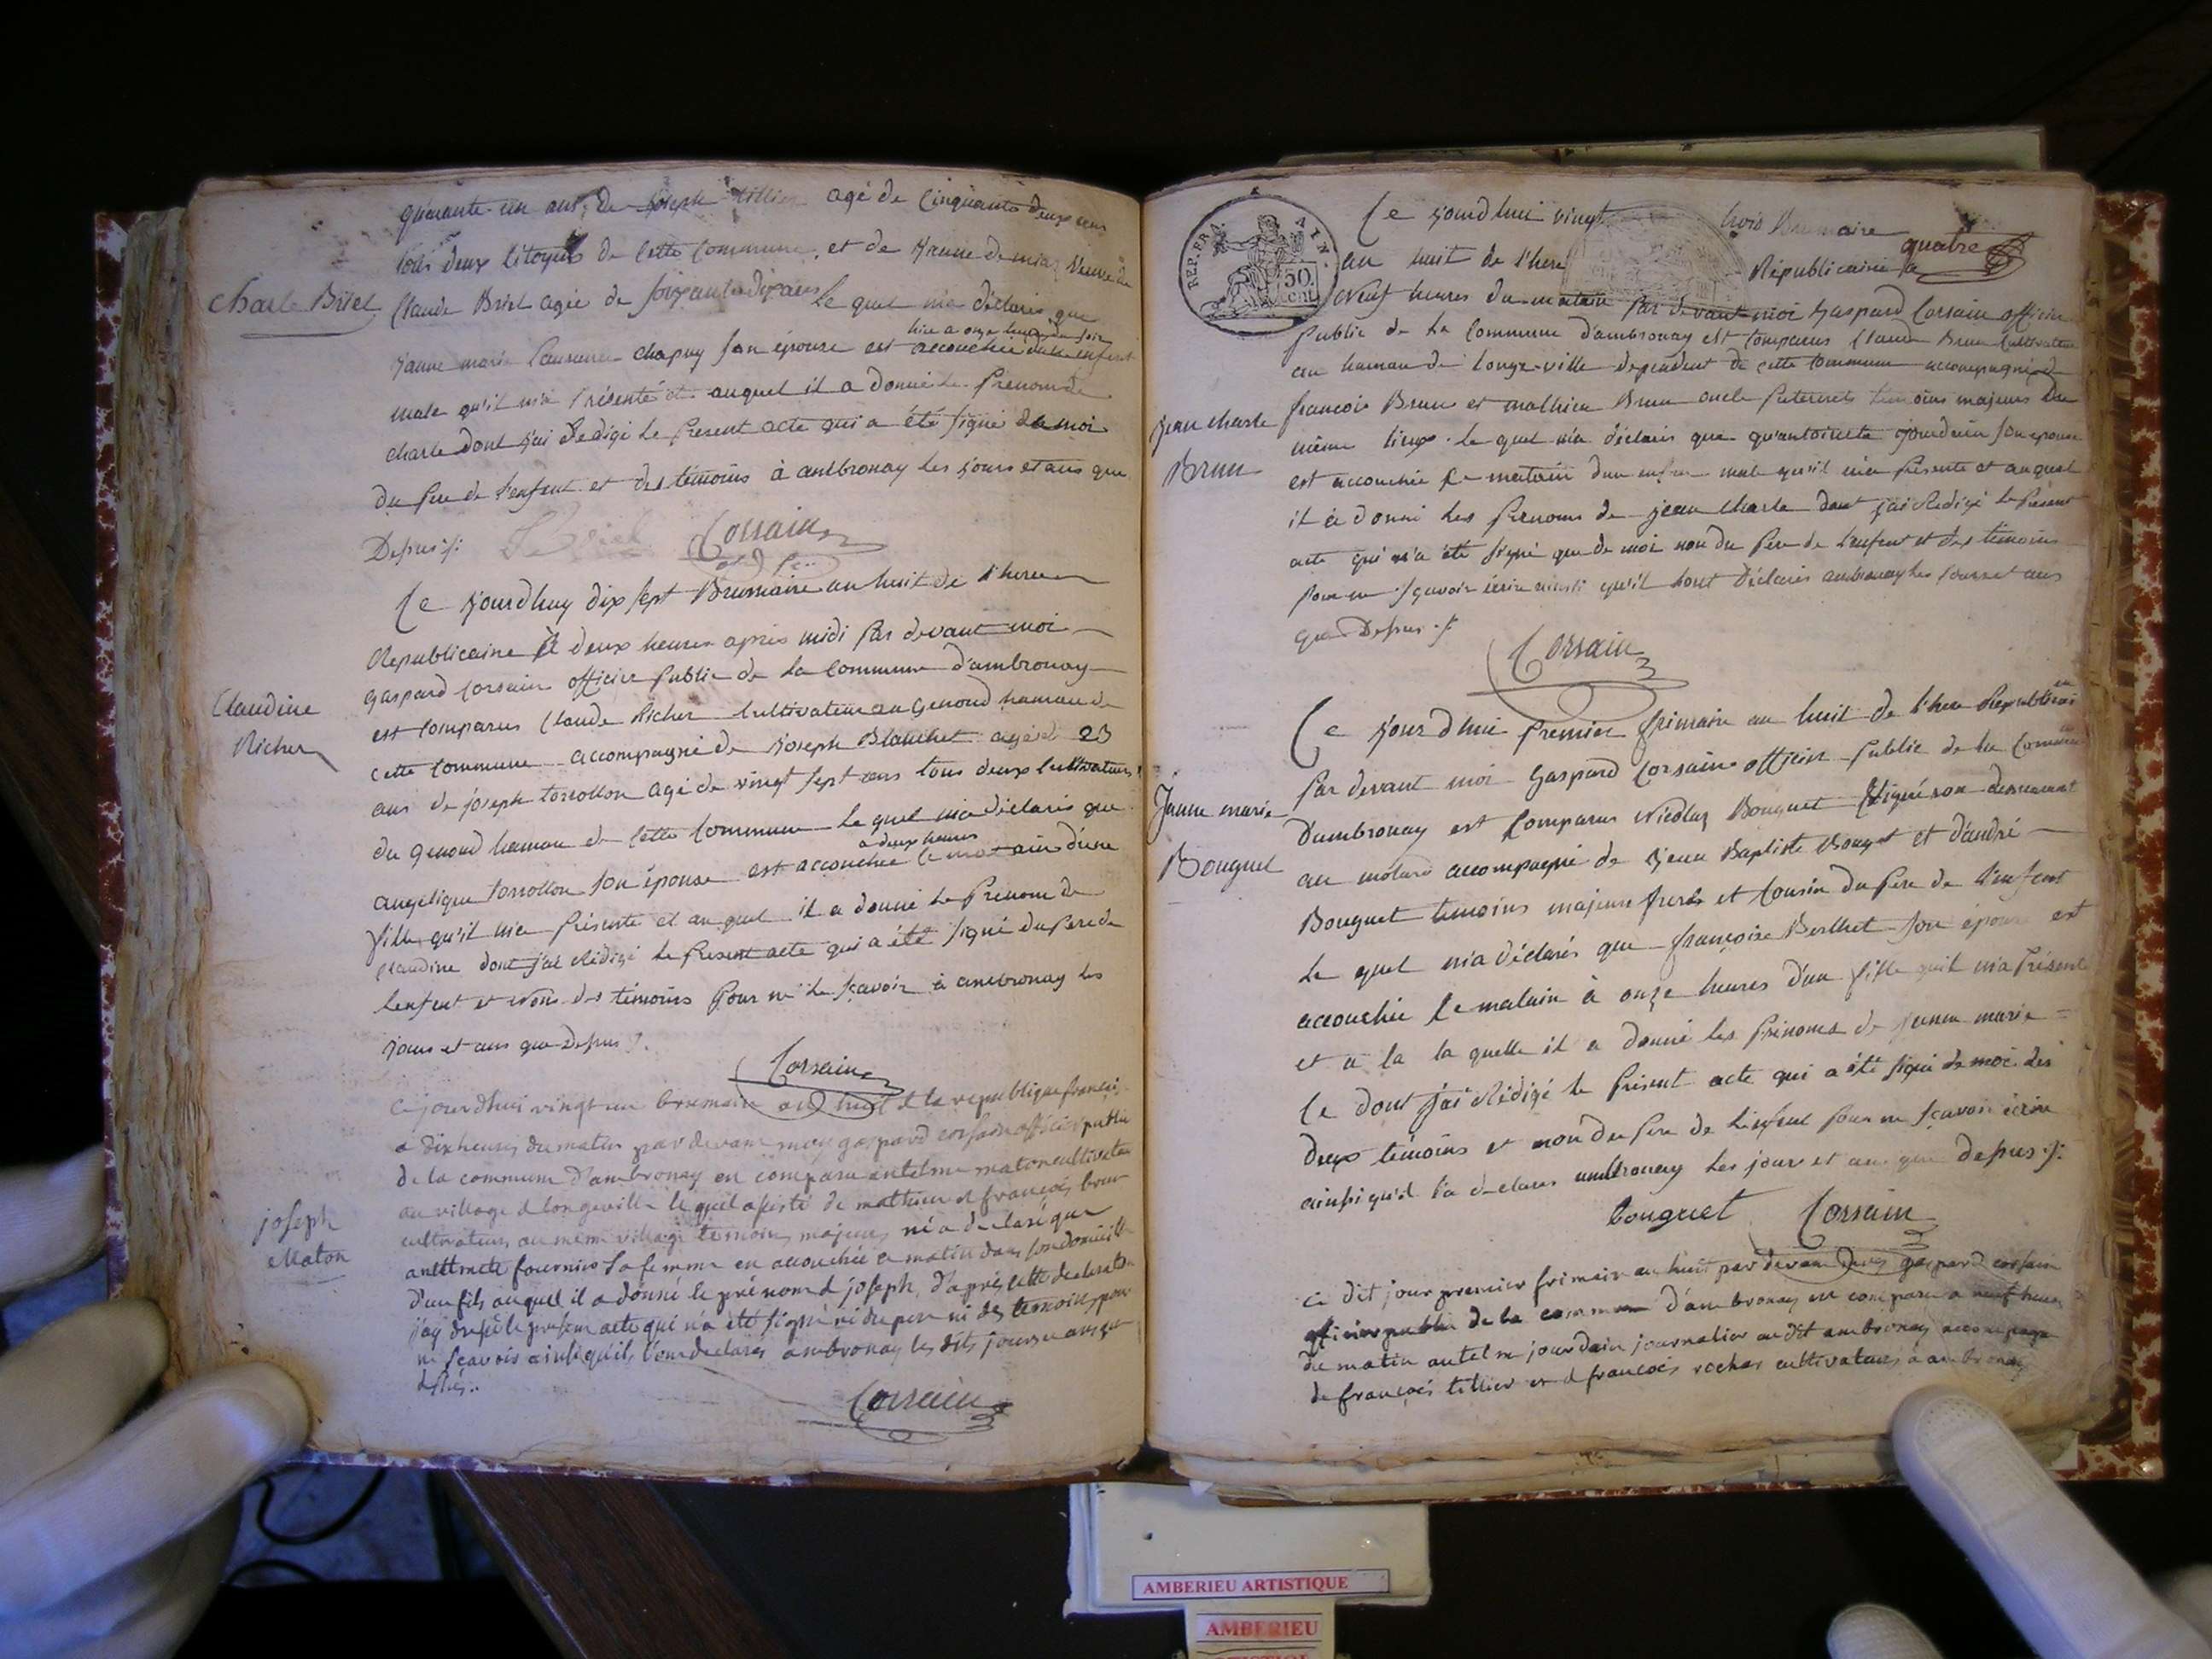 quarante un ans, de joseph tillier agé de Cinquante deux ans
tous deux Citoyens de Cette Commune, et de Jeanne veuve de
Charle Briel
Claude Briel agée de soixante dix ans Le quel m'a déclaré que
hier a onze heures du soir
Jeanne marie chapuy son épouse est accouchée d'un enfant
male qu'il m'a Présenté et auquel il a donné le Prenom de
charle dont j'ai Redigé le Present acte qui a été signé de moi
Du Pere de l'enfant et des témoins à ambronay les jours et ans que
Depus ./.
Corsain
Ce Jourdhuy dix sept Brumaire an huit de l'here
Republicaine à deux heures après midi Par devant moi
gaspard Corsain officier Public de la Commune d'ambronay
Claudine
Richer
est Comparus Claude Richer Cultivateur au genoud hamau de
cette Commune accompagné de Joseph Blanchet agé de 23
ans de joseph torrollon agé de vingt sept ans tous deux Cultivateurs
du genoud hamau de cette Commune le quel m'a déclaré que
a deux heures
angelique torrollon son épouse est accouchée ce matain d'une
fille qu'il m'a Présenté et au quel il a donné le Prénom de
Claudine dont j'ai Rédigé le Present acte qui a été signé du Pere de
lenfent et Non des témoins Pour ne le sçavoir à ambronay les
jours et ans que Depus ./.
Corsain
Cejourdhui vingt un brumaire an huit de la republique françai
a dix heures du matin par devant moy gaspard corsain officier public
de la commune d'ambronay en comparu antelme maton cultivateur
au village de longeville lequel assisté de mathieu et françois brun
joseph
Maton
cultivateurs au meme village temoins majeurs m'a declaré que
fournier sa femme en accouchée ce matin dans son domicille
d'un fils auquel il a donné le prénom de joseph, d'après cette declaration
j'ay dressé le present acte qui n'a été signé ni du pere ni des temoins pour
ne sçavoir ainsi qu'ils l'ont declaré ambronay les dits jours et ans que
Corsain
REP. FRA. AIN.
50 cent
Ce jourd'huit vingt trois Brumaire
an huit de l'here Républicaine à quatre
Neuf heures du matain Par devant moi Gaspard Corsain officier
Public de la Commune d'ambronay est Comparus Claude Brun Cultivateur
au hamau de longe-ville dependent de cette Commune accompagné de
jean charle
Brun
françois Brun et mathieu Brun oncle Paternels témoins majeurs du
même lieux. le quel m'a déclaré que qu'antoinette jourdain son epouse
est accouchée ce matain d'un enfan male qu'il m'a Présenté et auquel
il a donné les Prenoms de jean charle dont j'ai Redigé le Présent
acte qui n'a été signé que de moi non du Pere de l'enfent et des témoins
Pour ne sçavoir écrire ainsi qu'il l'ont déclaré ambronay les jours et ans
que Depus ./.
Corsain
Ce jour d'hui Premier frimaire an huit de l'here Republicaine
Par devant moi Gaspard Corsain officier Public de la Commune
Jeanne marie
Bouguet
D'ambronay est Comparus Nicolas Bouguet demeurant
au molard accompagné de Jean Baptiste Bouguet et d'andré
Bouguet temoins majeurs freres et Cousin du Pere de l'enfent
le quel m'a déclaré que françoise Berthet son épouse est
accouchée ce matain à onze heures d'un fille quil m'a Présenté
et à la la quelle il a donné les Prénoms de jeanne marie
Ce dont j'ai Rédigé le Présent acte qui a été signé de moi des
Deux témoins et non du Pere de l'enfent Pour ne sçavoir écrire
ainssi qu'il l'a declaré ambronay les jour et an que Depus ./.
bouguet Corsain
Ce dit jour premier frimaire an huit par devant moy gaspard corsain
officier public de la commune d'ambronay en comparu a neuf heures
du matin antelme jourdain journalier au dit ambronay accompagné
de françois tillier et de françois rochas cultivateurs à ambronay
AMBERIEU ARTISTIQUE
AMBERIEU